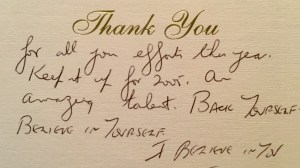 Thank You
for all your efforts this year.
Keep it up for 2005. An
amazing talent. BACK YOURSELF
BELIEVE IN YOURSELF
I BELIEVE IN YOU